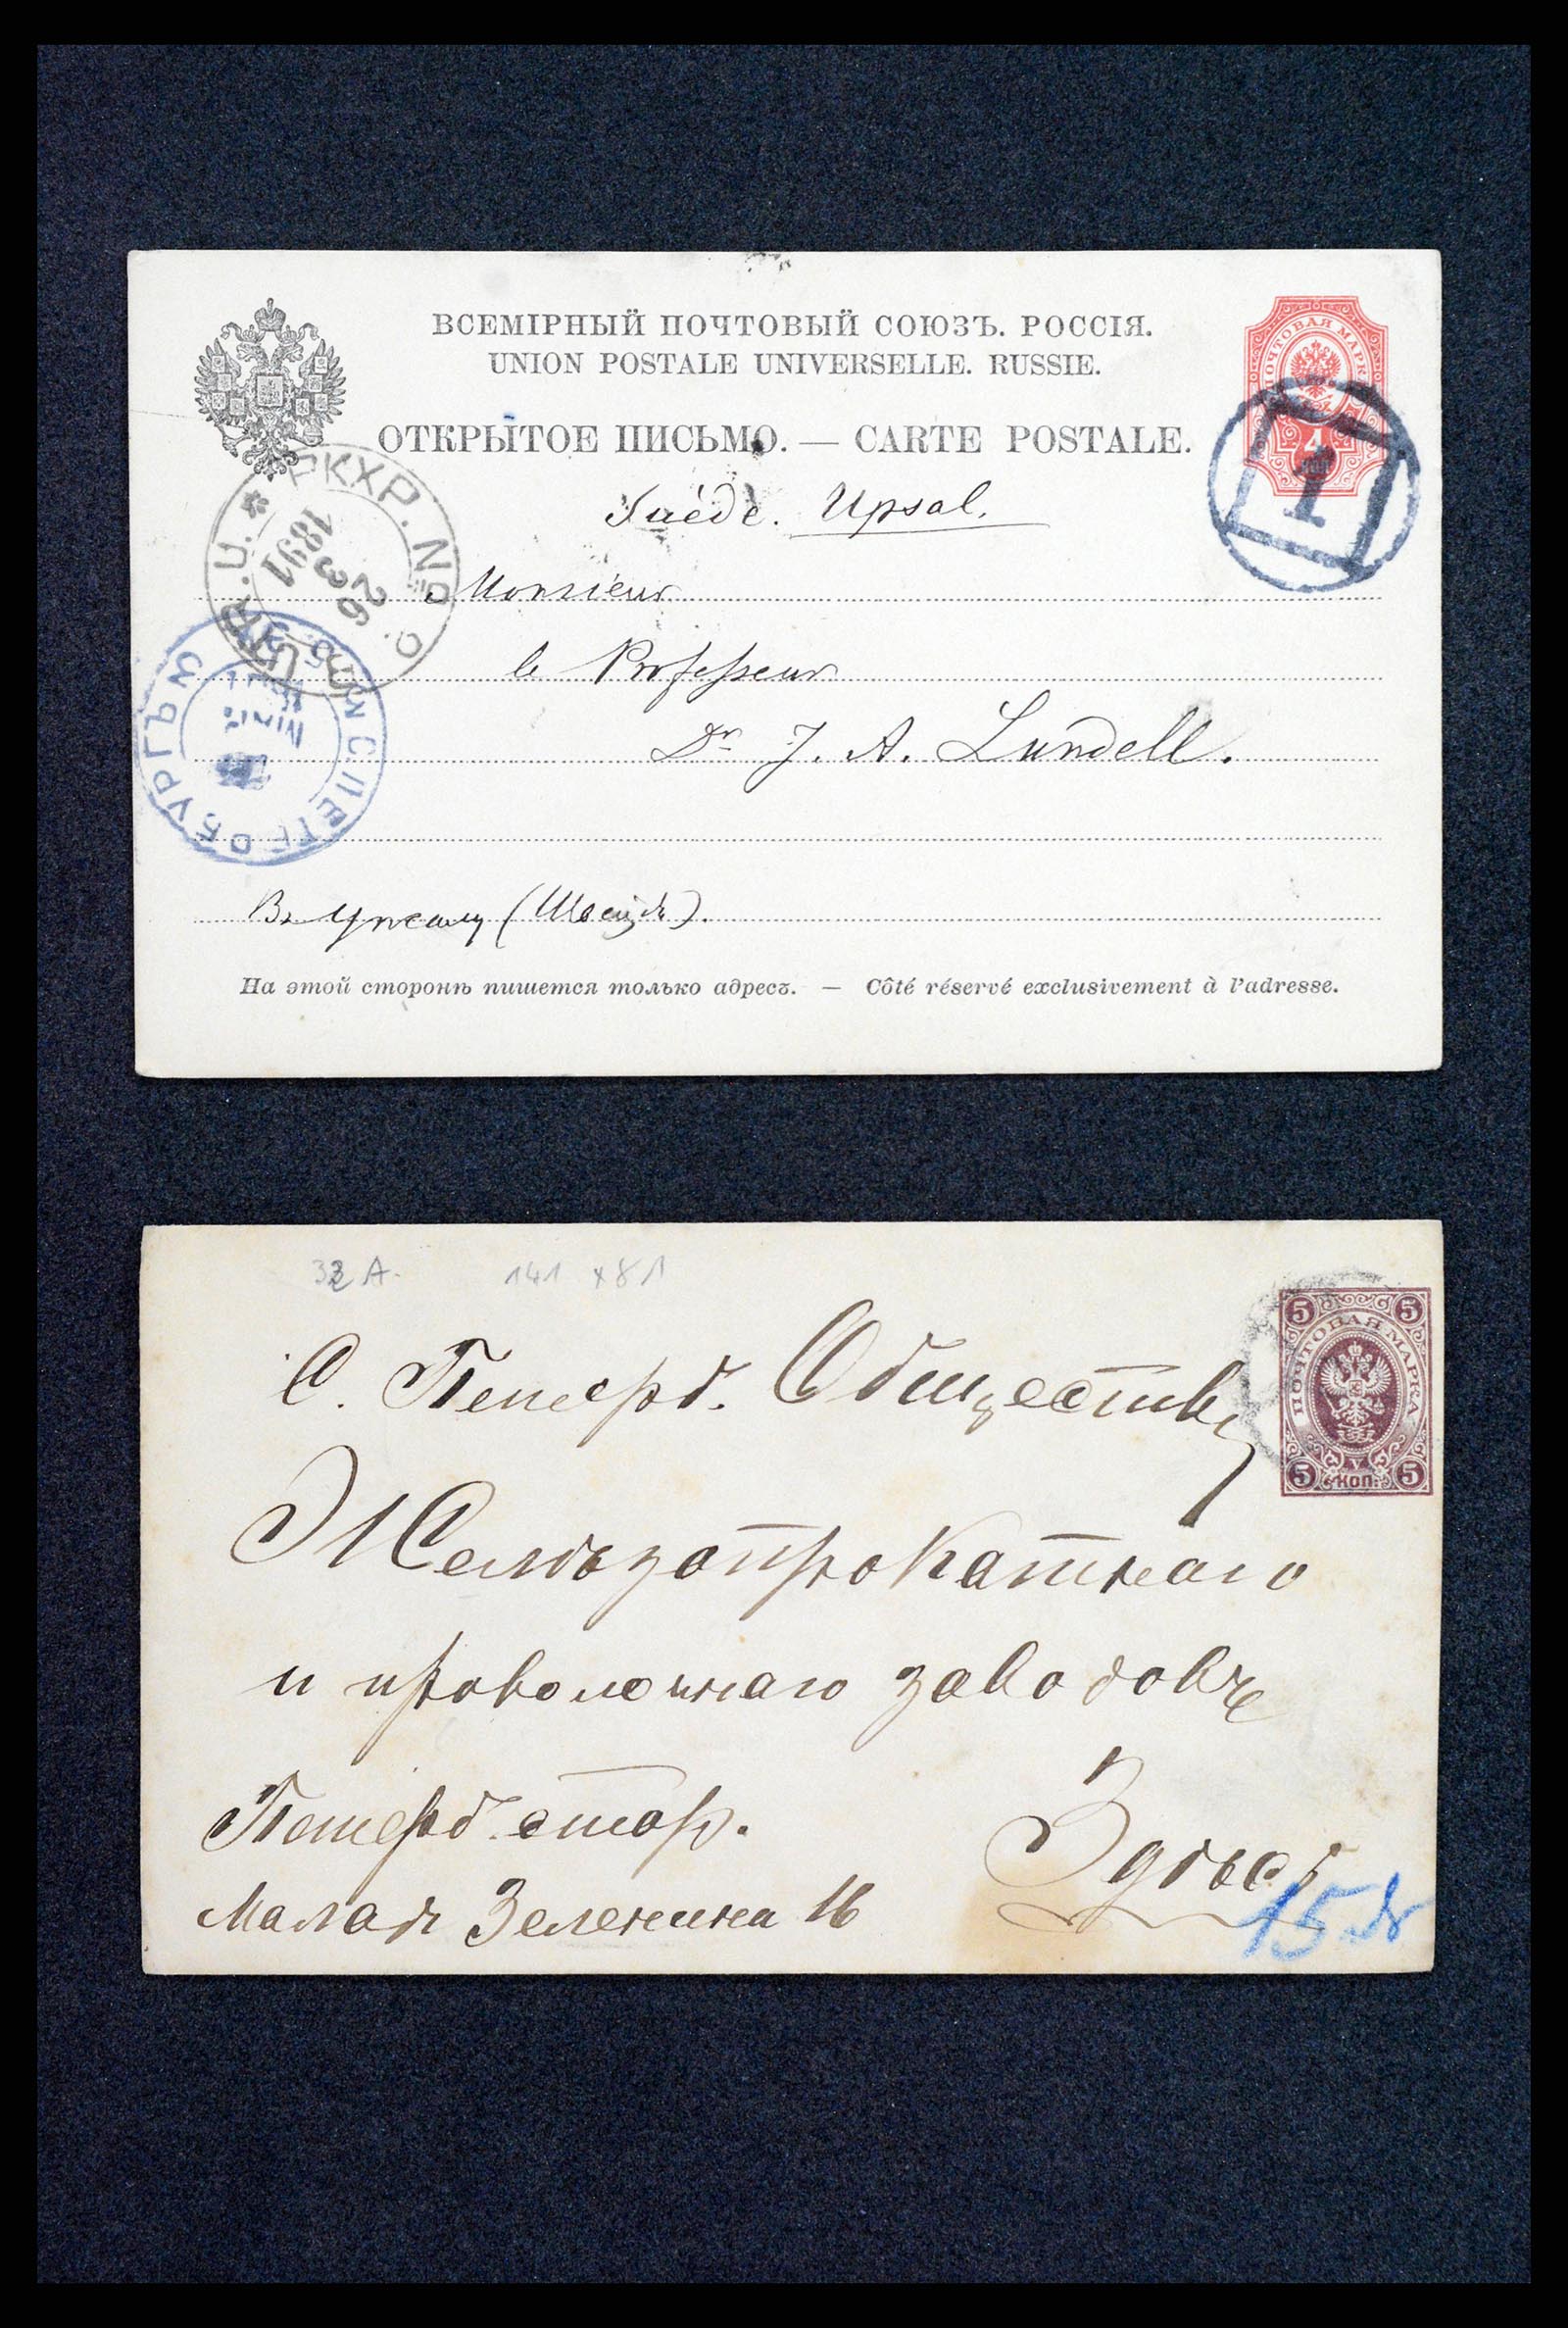 ВСЕМІРНЫЙ ПОЧТОВЫЙ СОЮЗЪ. РОССІЯ.
UNION POSTALE UNIVERSELLE. RUSSIE.
ОТКРЫТОЕ ПИСЬМО. — CARTE POSTALE.
ПОЧТОВАЯ МАРКА
4
КОП.
1
PKXP. No
26
3
1891
Suède. Upsal.
Monsieur
le Professeur
Dr J. A. Lundell.
С. ПЕТЕРБУРГЪ
Въ Упсалу (Швецiя).
На этой сторонѣ пишется только адресъ. — Côté réservé exclusivement à l'adresse.
141 x 81
ПОЧТОВАЯ МАРКА
5 5
5 КОП. 5
С. Петерб. Обществу
Желѣзопрокатнаго
и проволочнаго заводовъ
Петерб. стор.
Малая Зеленина 16
Здѣсь
15